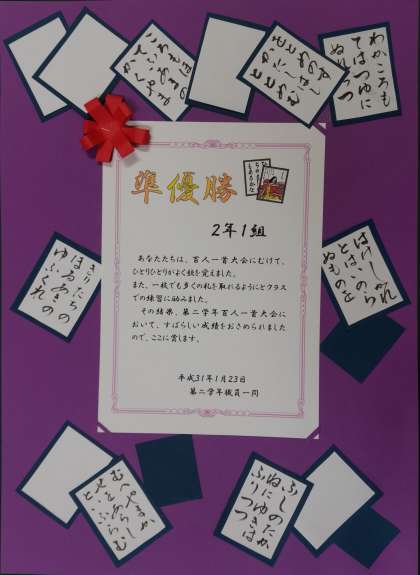 わかころも
てはつゆに
ぬれつつ
準優勝
2年1組
あなたたちは、百人一首大会にむけて、
ひとりひとりがよく歌を覚えました。
また、一枚でも多くの札を取れるようにとクラス
での練習に励みました。
その結果、第二学年百人一首大会に
おいて、すばらしい成績をおさめられました
ので、ここに賞します。
平成31年1月23日
第二学年職員一同
きりたちの
ほるあきの
ゆふくれ
はけしかれ
とはいのら
ぬものを
むへやまか
せをあらし
といふらむ
ふしのたか
ねにゆきは
ふりつつ